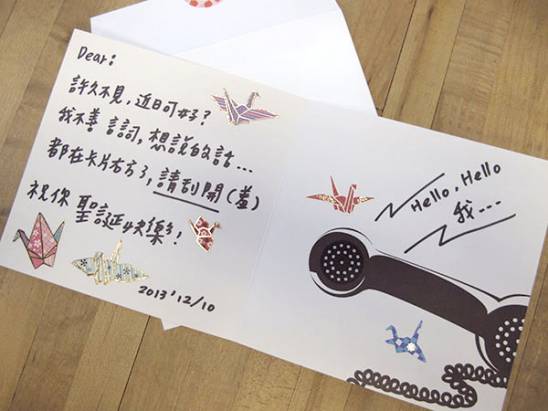 Dear:
許久不見,近日可好?
我不善言詞,想說的話...
都在卡片右方了,請刮開(羞)
祝你 聖誕快樂!
2013'12/10
Hello, Hello
我---